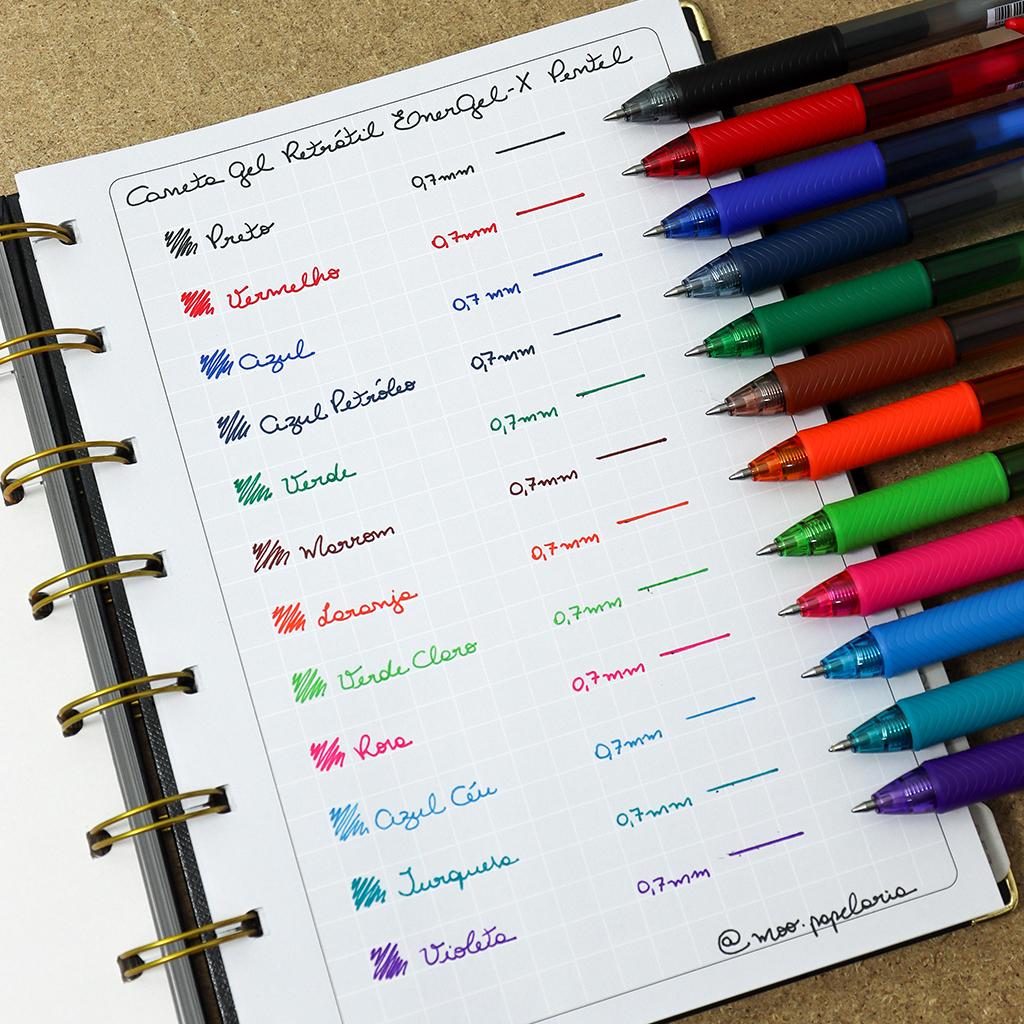 Caneta gel Retrátil EnerGel-X Pentel
Preto 0,7mm
Vermelho 0,7mm
Azul 0,7mm
Azul Petróleo 0,7mm
Verde 0,7mm
Marrom 0,7mm
Laranja 0,7mm
Verde Claro 0,7mm
Rosa 0,7mm
Azul Céu 0,7mm
Turquesa 0,7mm
Violeta 0,7mm
@moo.papelaria